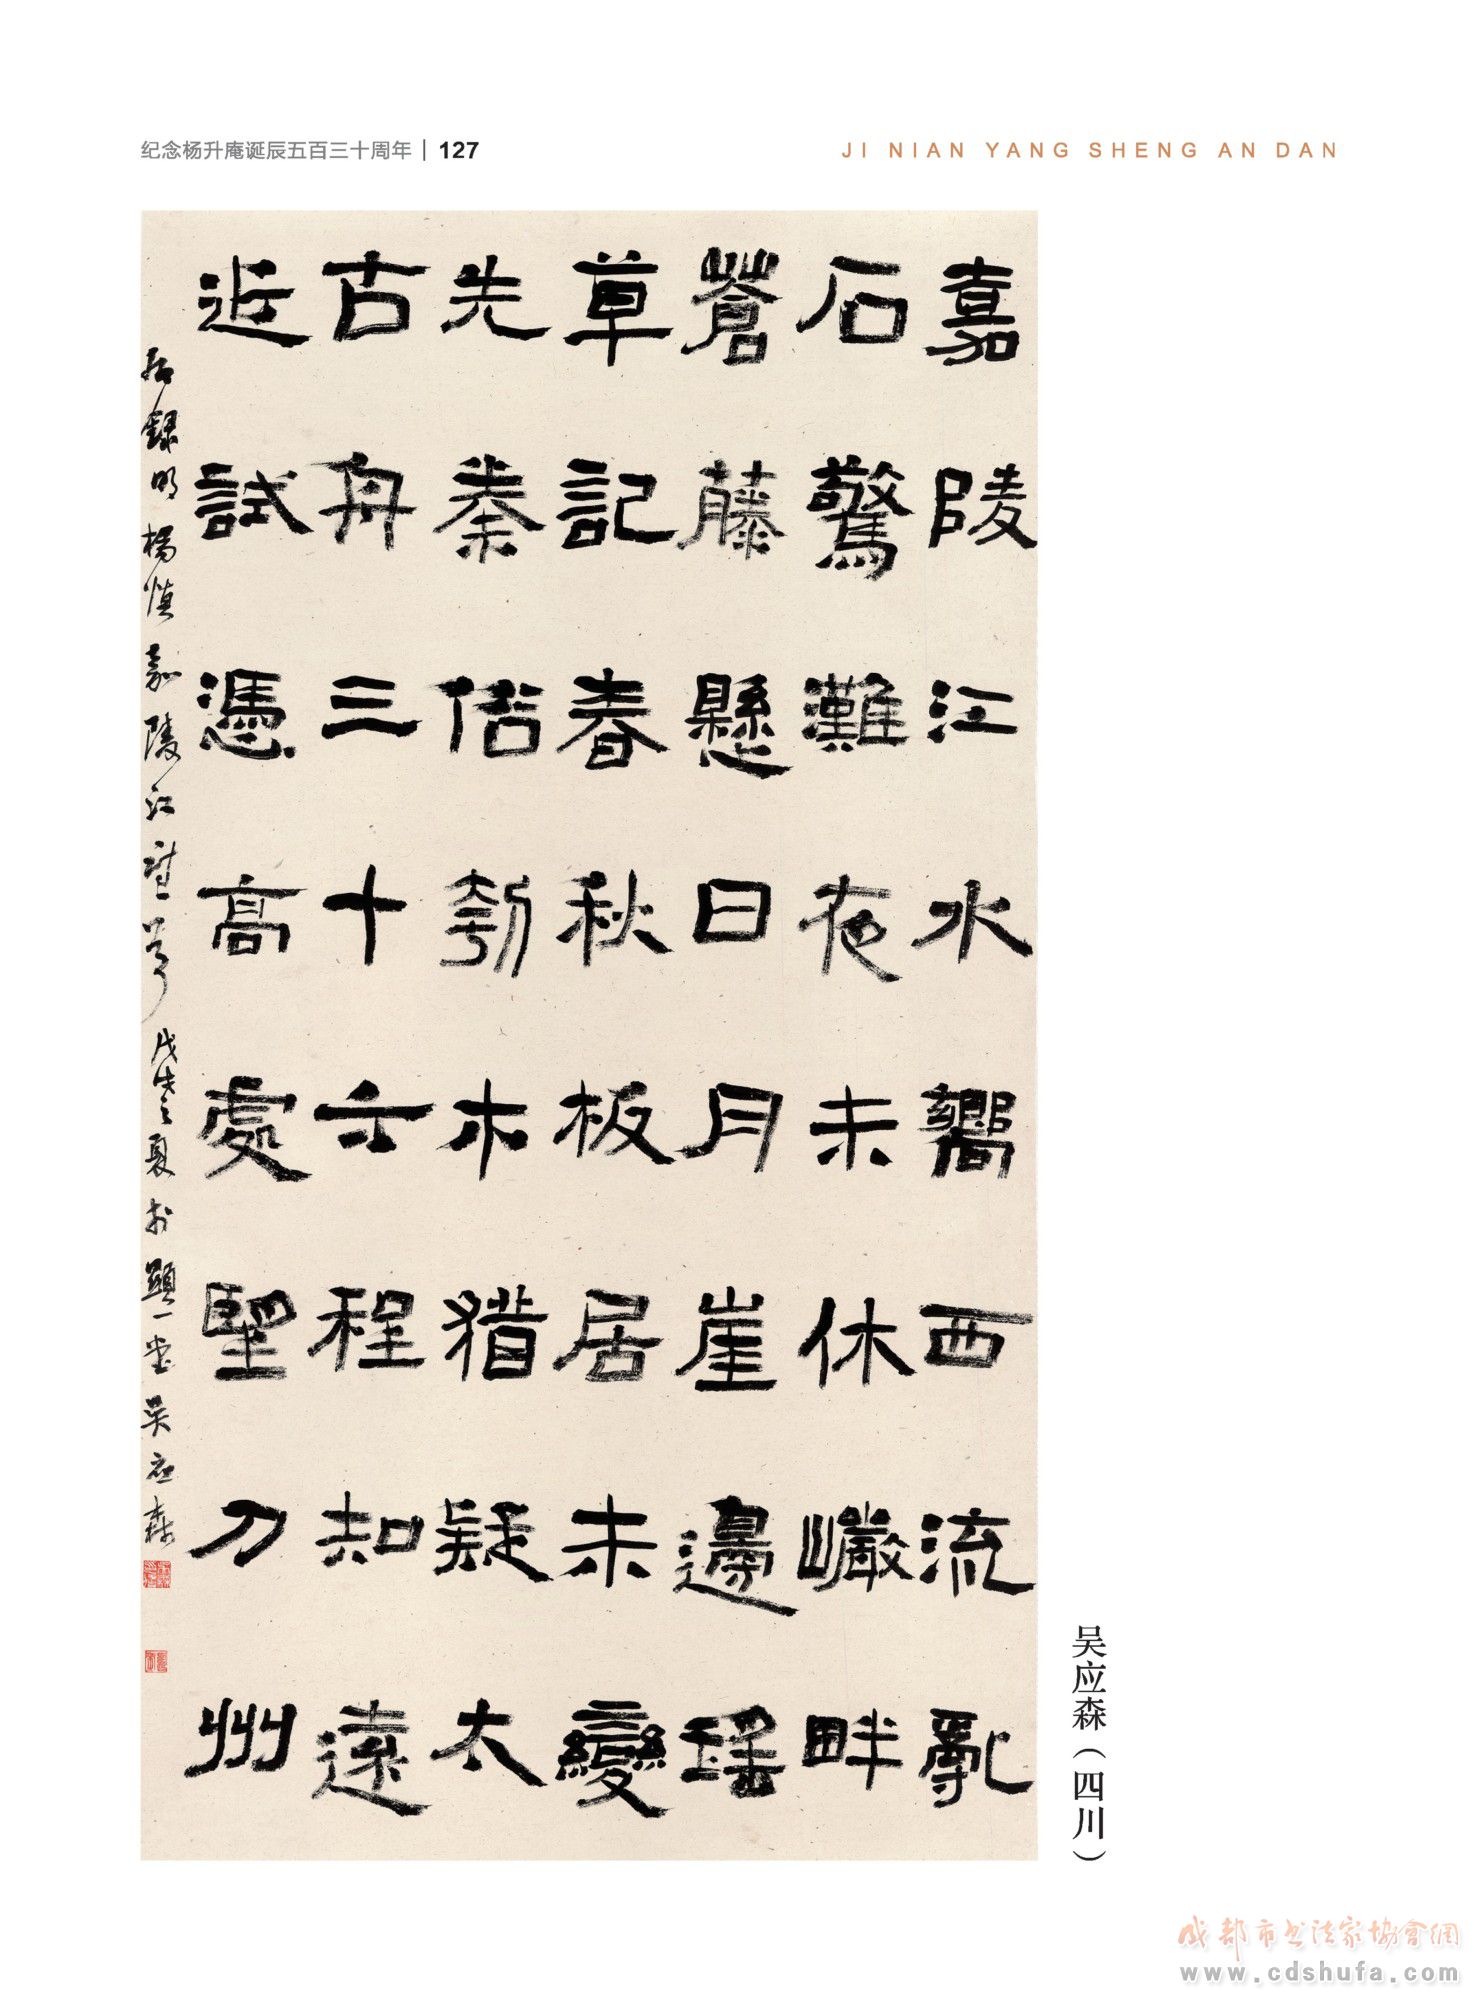 纪念杨升庵诞辰五百三十周年 | 127
JI NIAN YANG SHENG AN DAN
嘉陵江水嚮西流亂
石驚灘夜未休巖畔
蒼藤懸日月崖邊瑶
草記春秋板居未變
先秦俗刳木猶疑太
古舟三十六程知遠
近試憑高處望刀州
右錄明楊慎嘉陵江 戊戌之夏於顯一堂吴應森
吴应森（四川）
成都市书法家協會網
www.cdshufa.com